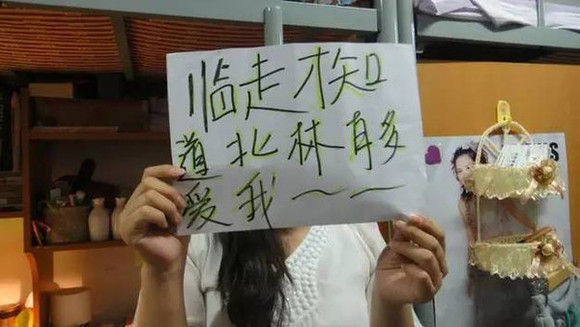 临走才知
道北林有多
爱我～～